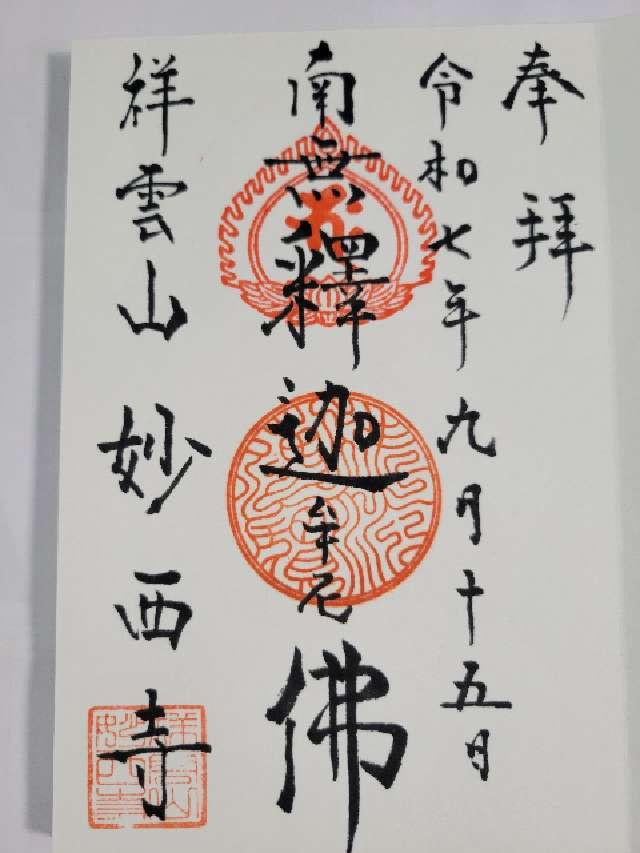 奉拝
令和七年九月十五日
南無釋迦牟尼佛
祥雲山妙西寺